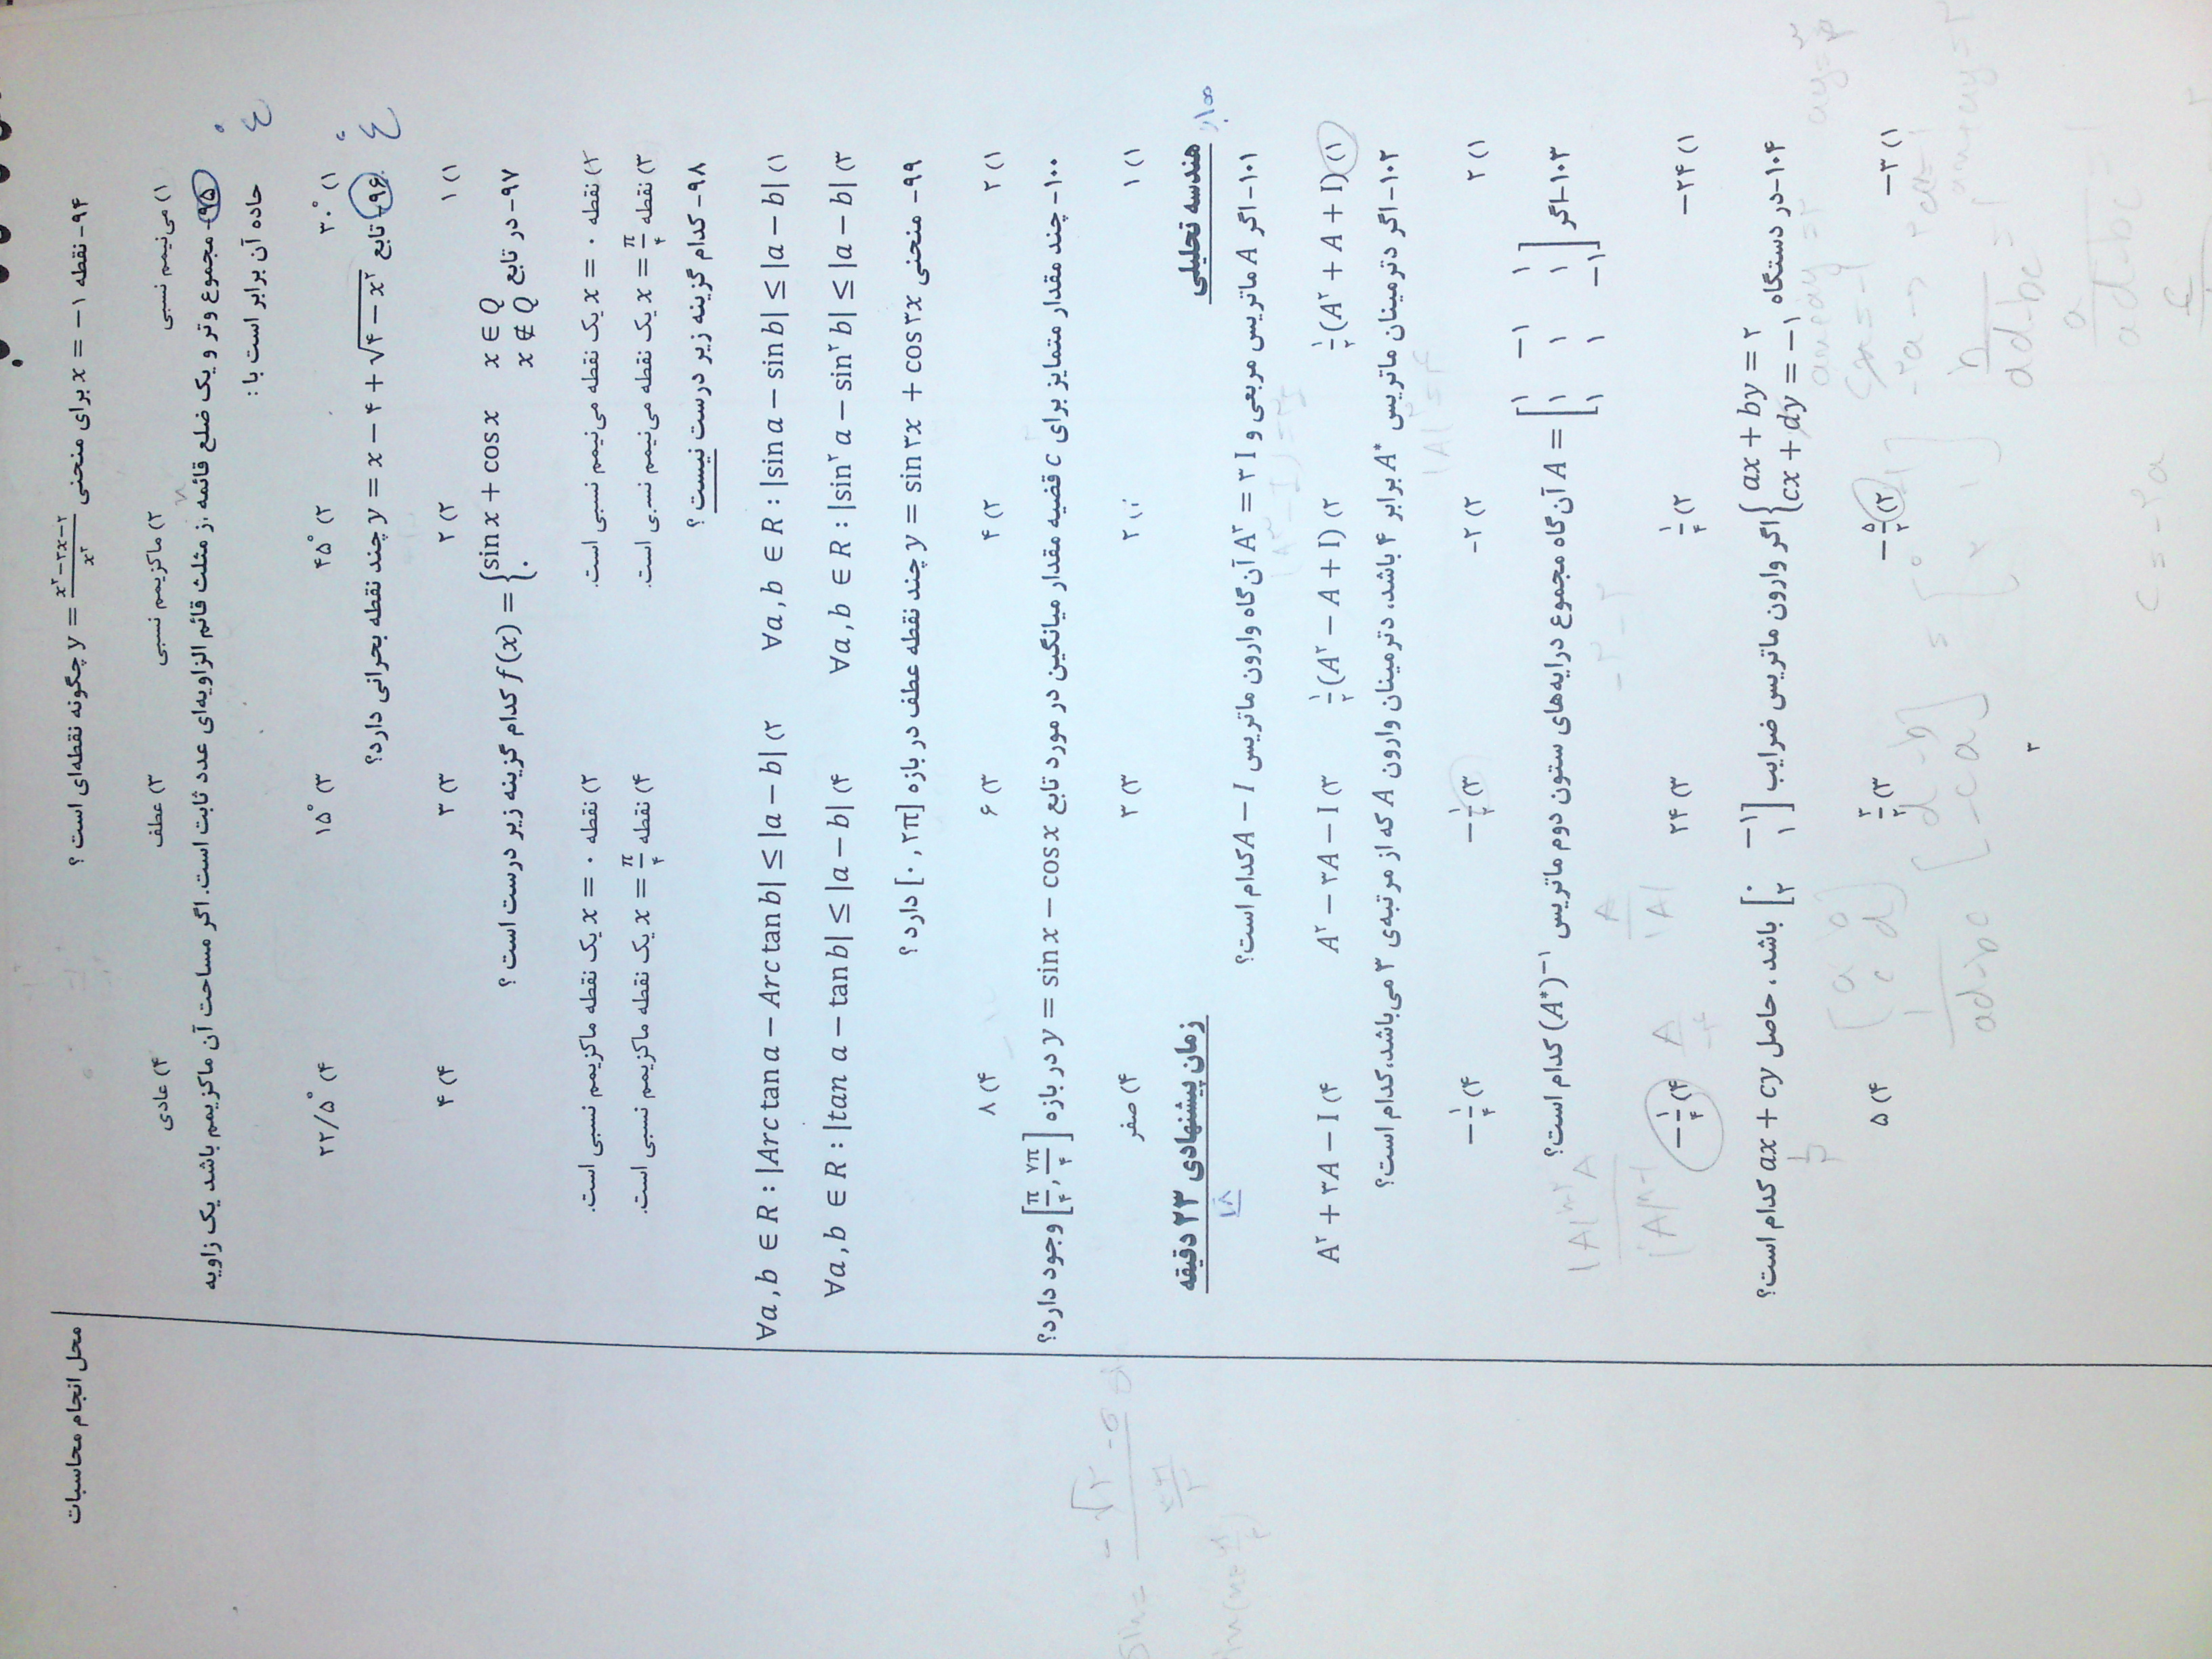 محل انجام محاسبات
۹۴- نقطه x = −۱ برای منحنی y = \frac{x^۲−۳x−۲}{x^۲} چگونه نقطه‌ای است ؟
۱) می‌نیمم نسبی ۲) ماکزیمم نسبی ۳) عطف ۴) عادی
۹۵- مجموع وتر و یک ضلع قائمه از مثلث قائم الزاویه‌ای عدد ثابت است. اگر مساحت آن ماکزیمم باشد یک زاویه
حاده آن برابر است با :
۱) ۳۰° ۲) ۴۵° ۳) ۱۵° ۴) ۲۲/۵°
۹۶- تابع y = x − ۴ + √(۴ − x^۲) چند نقطه بحرانی دارد؟
۱) ۱ ۲) ۲ ۳) ۳ ۴) ۴
۹۷- در تابع f(x) = { sin x + cos x x ∈ Q ; ۰ x ∉ Q کدام گزینه زیر درست است ؟
۱) نقطه x = ۰ یک نقطه می‌نیمم نسبی است. ۲) نقطه x = ۰ یک نقطه ماکزیمم نسبی است.
۳) نقطه x = \frac{π}{۴} یک نقطه می‌نیمم نسبی است. ۴) نقطه x = \frac{π}{۴} یک نقطه ماکزیمم نسبی است.
۹۸- کدام گزینه زیر درست نیست ؟
۱) ∀a, b ∈ R : |sin a − sin b| ≤ |a − b| ۲) ∀a, b ∈ R : |Arc tan a − Arc tan b| ≤ |a − b|
۳) ∀a, b ∈ R : |sin^۲ a − sin^۲ b| ≤ |a − b| ۴) ∀a, b ∈ R : |tan a − tan b| ≤ |a − b|
۹۹- منحنی y = sin ۳x + cos ۳x چند نقطه عطف در بازه [۰ , ۲π] دارد ؟
۱) ۲ ۲) ۴ ۳) ۶ ۴) ۸
۱۰۰- چند مقدار متمایز برای c قضیه مقدار میانگین در مورد تابع y = sin x − cos x در بازه [\frac{π}{۴}, \frac{۷π}{۴}] وجود دارد؟
۱) ۱ ۲) ۲ ۳) ۳ ۴) صفر
هندسه تحلیلی زمان پیشنهادی ۲۳ دقیقه
۱۸
۱۰۱- اگر A ماتریس مربعی و A^۳ = ۳I آن‌گاه وارون ماتریس A − I کدام است؟
۱) \frac{۱}{۲}(A^۲ + A + I) ۲) \frac{۱}{۲}(A^۲ − A + I) ۳) A^۲ − ۳A − I ۴) A^۲ + ۳A − I
۱۰۲- اگر دترمینان ماتریس A^* برابر ۴ باشد، دترمینان وارون A که از مرتبه‌ی ۳ می‌باشد، کدام است؟
۱) ۲ ۲) −۲ ۳) −\frac{۱}{۲} ۴) −\frac{۱}{۴}
۱۰۳- اگر A = [۱ −۱ ۱ ; ۱ ۱ ۱ ; ۱ ۱ −۱] آن‌گاه مجموع درایه‌های ستون دوم ماتریس (A^*)^{−۱} کدام است؟
۱) −۲۴ ۲) \frac{۱}{۴} ۳) ۲۴ ۴) −\frac{۱}{۴}
۱۰۴- در دستگاه { ax + by = ۲ ; cx + dy = −۱ اگر وارون ماتریس ضرایب [۰ −۱ ; ۲ ۱] باشد ، حاصل ax + cy کدام است؟
۱) −۳ ۲) −\frac{۵}{۲} ۳) \frac{۳}{۲} ۴) ۵
۳
c = −۲a